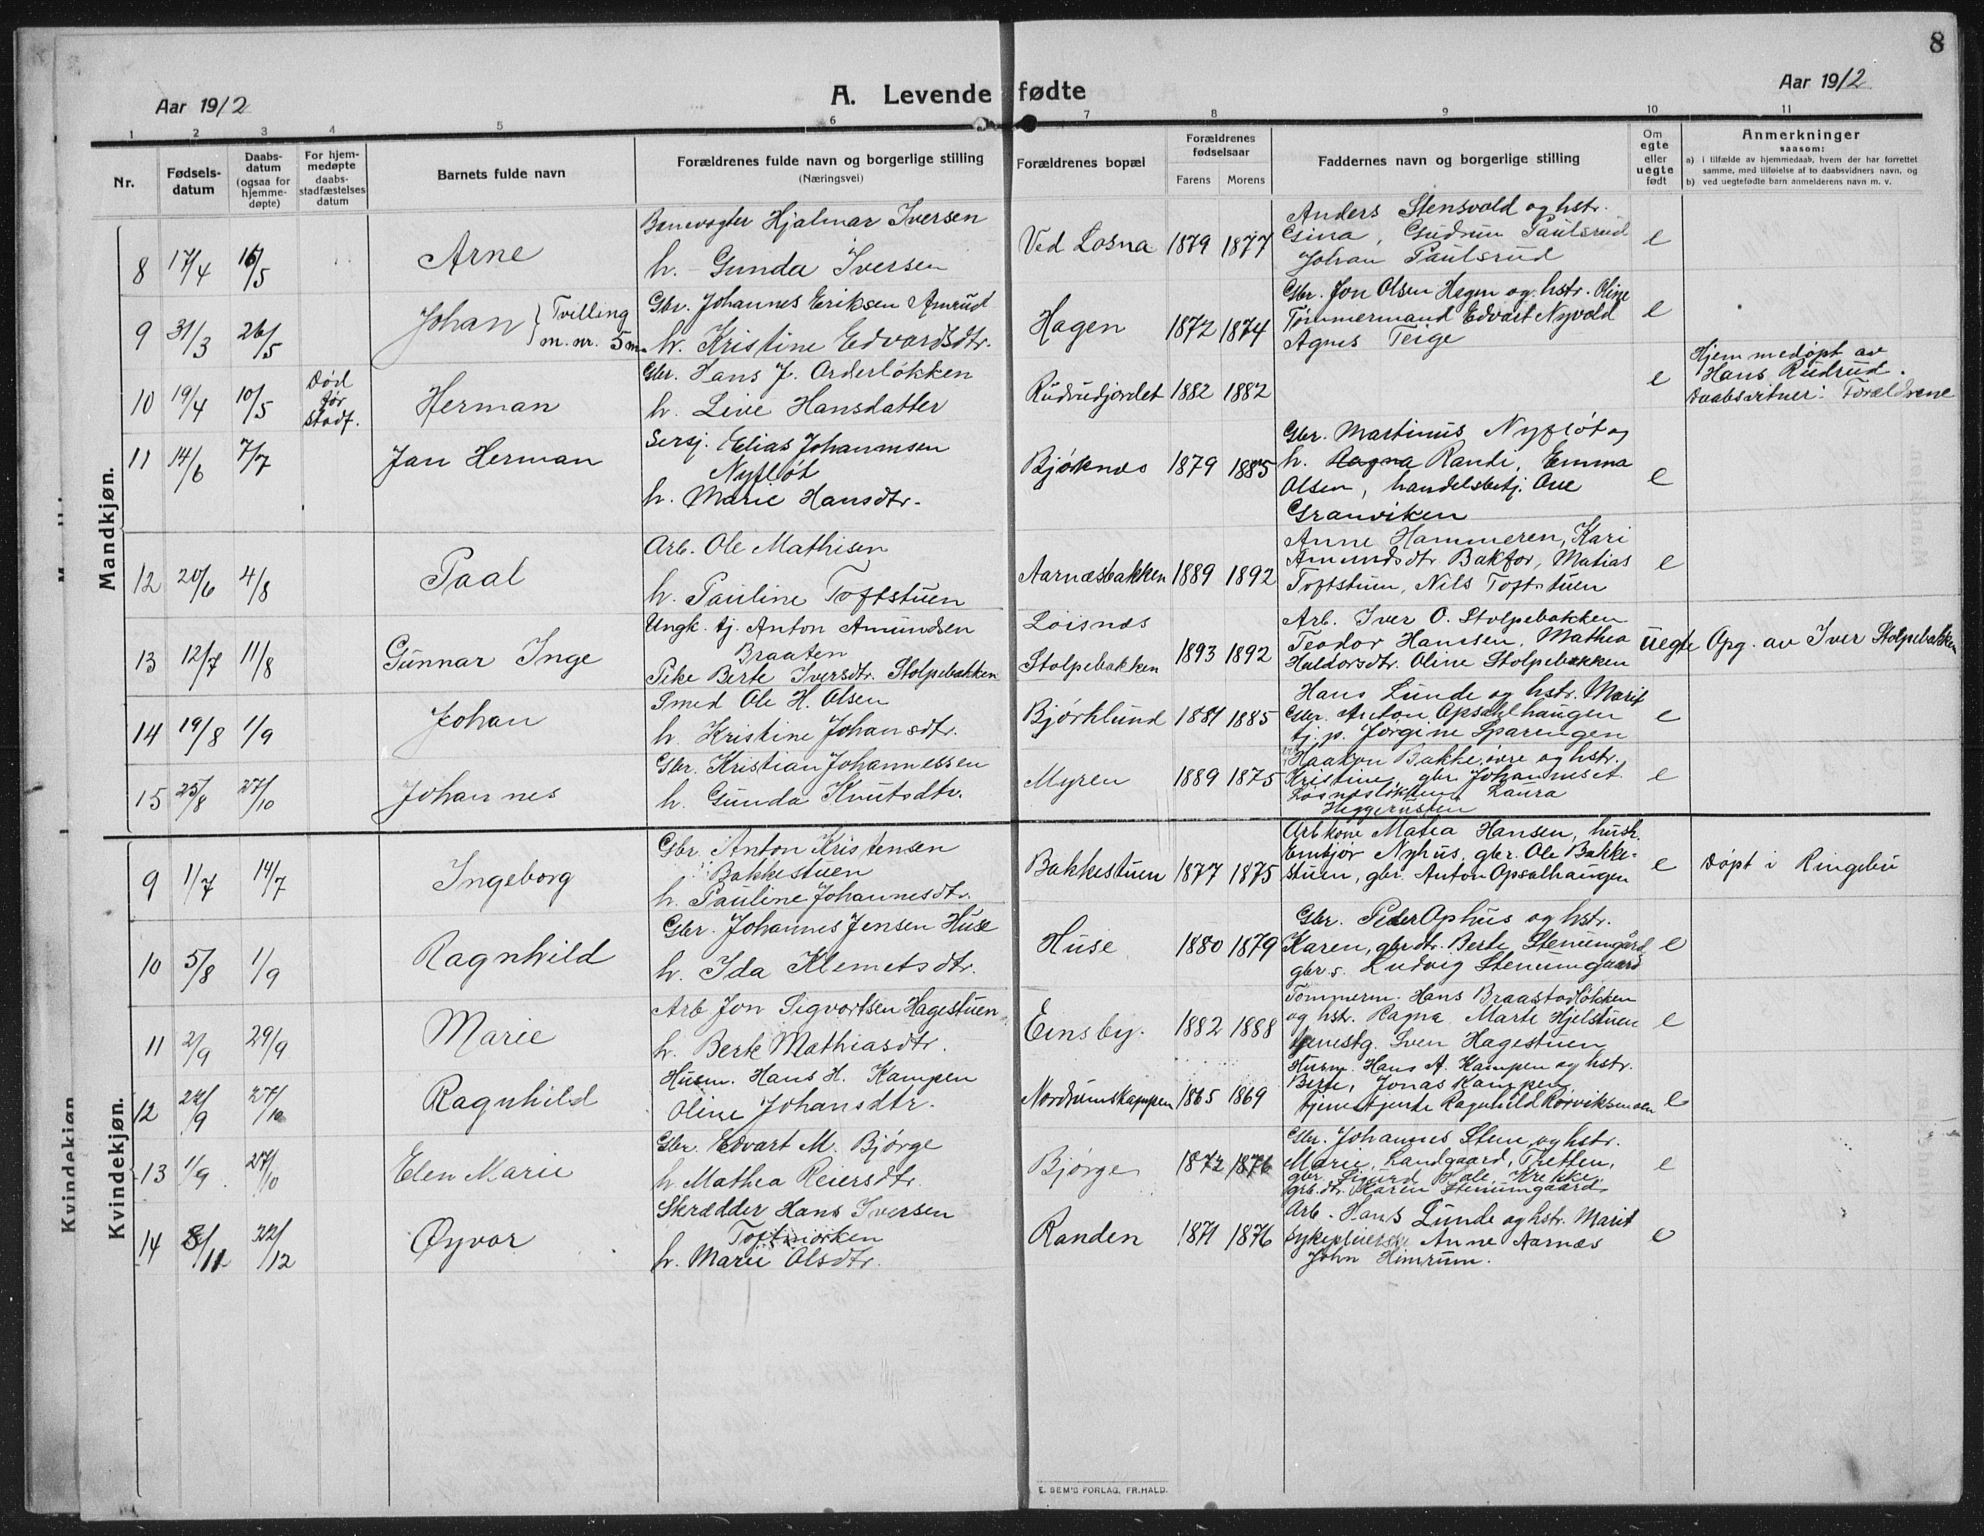 8
Aar 1912
A. Levende fødte
Aar 1912
1 2 3 4 5 6 7 8 9 10 11
Nr.
Fødsels-
datum
Daabs-
datum
(ogsaa for
hjemme-
døpte)
For hjem-
medøpte
daabs-
stadfæstelses
datum
Barnets fulde navn
Forældrenes fulde navn og borgerlige stilling
(Næringsvei)
Forældrenes bopæl
Forældrenes
fødselsaar
Farens Morens
Faddernes navn og borgerlige stilling
Om
egte
eller
uegte
født
Anmerkninger
saasom:
a) i tilfælde av hjemmedaab, hvem der har forrettet
samme, med tilføielse af to daabsvidners navn, og
b) ved uegtefødte barn anmelderens navn m. v.
Mandkjøn.
8 17/4 16/5 Arne
Banevogter Hjalmar Iversen
h. Gunda Iversen
Ved Losna 1879 1877
Anders Stensvold og hstr.
Gina, Gudrun Paulsrud
Johan Paulsrud
e
9 31/3 26/5 Johan } Tvilling
m. nr. 5 m.
Gbr. Johannes Eriksen Amrud
h. Kristine Edvardsdtr.
Hagen 1872 1874
Gbr. Jon Olsen Hagen og hstr. Oline
Tømmermand Edvart Nyvold
Agnes Teige
e
10 19/4 10/5 Død
før
stadf.
Herman
Gbr. Hans J. Orderløkken
h. Live Hansdatter
Rudrudjordet 1882 1882
e
Hjemmedøpt av
Hans Rudrud.
Daabsvitner: Forældrene
11 14/6 7/7 Jan Herman
Sersj. Elias Johannsen
Nyfløt
h. Marie Hansdtr.
Bjørknes 1879 1885
Gbr. Martinus Nyfløt og
h. Ragna Randi, Emma
Olsen, handelsbetj. Ove
Granviken
e
12 20/6 4/8 Paal
Arb. Ole Mathisen
h. Pauline Toftstuen
Aarnæsbakken 1889 1892
Anne Hammeren, Kari
Amundsdtr Bakfor, Matias
Toftstuen, Nils Toftstuen
e
13 12/7 11/8 Gunnar Inge
Ungk. tj. Anton Amundsen
Braaten
Pike Berte Iversdtr. Stolpebakken
Losnes
Stolpebakken 1893 1892
Arb. Iver O. Stolpebakken
Teodor Hansen, Mathea
Haldorsdtr. Oline Stolpebakken
uegte Opg. av Iver Stolpebakken
14 19/8 1/9 Johan
Smed Ole H. Olsen
h. Kristine Johansdtr.
Bjørklund 1881 1885
Hans Lunde og hstr. Marit
Gbr. Anton Opsahlhaugen
tj. p. Jørgine Sparengen
e
15 25/8 27/10 Johannes
Gbr. Kristian Johannessen
h. Gunda Knutsdtr.
Myren 1889 1875
Haakon Bakke, øvre og hstr.
Kristine, gbr. Johannes
Losnesløkken, Laura
Heggerusten
e
Kvindekjøn.
9 1/7 14/7 Ingeborg
Gbr. Anton Kristensen
Bakkestuen
h. Pauline Johannesdtr.
Bakkestuen 1877 1875
Arb kone Matea Hansen, hush.
Embjør Nyhus, gbr. Ole Bakke-
stuen, gbr. Anton Opsalhaugen
e
Døpt i Ringebu
10 5/8 1/9 Ragnhild
Gbr. Johannes Jensen Huse
h. Ida Klemetsdtr.
Huse 1880 1879
Gbr. Peder Ophus og hstr.
Karen, gbr.dtr. Berte Stenumgård
gbr.s. Ludvig Stenumgaard
e
11 2/9 29/9 Marie
Arb. Jon Sigvartsen Hagestuen
h. Berte Mathiasdtr.
Einsby. 1882 1888
Tømmerm. Hans Braastadløkken
og hstr. Ragna, Marte Hjelstuen
tjenestg. Sven Hagestuen
e
12 22/9 27/10 Ragnhild
Husm. Hans H. Kampen
Oline Johansdtr.
Nordrumskampen 1865 1869
Husm. Hans A. Kampen og hstr.
Berte, Jonas Kampen,
tjenestjente Ragnhild Rørviksmoen
e
13 1/9 27/10 Elen Marie
Gbr. Edvart M. Bjørge
h. Mathea Reiersdtr.
Bjørge 1872 1876
Gbr. Johannes Stem og hstr.
Marie, Landgaard, Tretten,
gbr. Sigurd Hole, Krekke,
grb.dtr. Karen Stenumgaard
e
14 8/11 22/12 Øyvor
Skrædder Hans Iversen
Toftmorken
h. Marie Olsdtr.
Randen 1871 1876
Arb. Hans Lunde og hstr. Marit
Sykepleierske Anne Aarnæs
John Himrum.
e
Kvindekjøn
E. SEM'S FORLAG, FR.HALD.